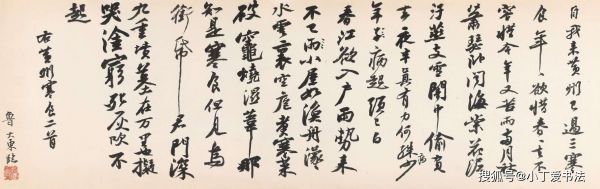 自我來黃州已過三寒
食年〻欲惜春〻去不
容惜今年又苦雨兩月秋
蕭瑟卧聞海棠花泥
汙燕支雪闇中偷負
去夜半真有力何殊病少
年子病起頭已白
春江欲入戶雨勢來
不已雨小屋如漁舟濛〻
水雲裏空庖煮寒菜
破竈燒濕葦那
知是寒食但見烏
銜帋君門深
九重墳墓在万里也擬
哭塗窮死灰吹不
起
右黃州寒食二首
魯大東臨
搜狐号@小丁爱书法